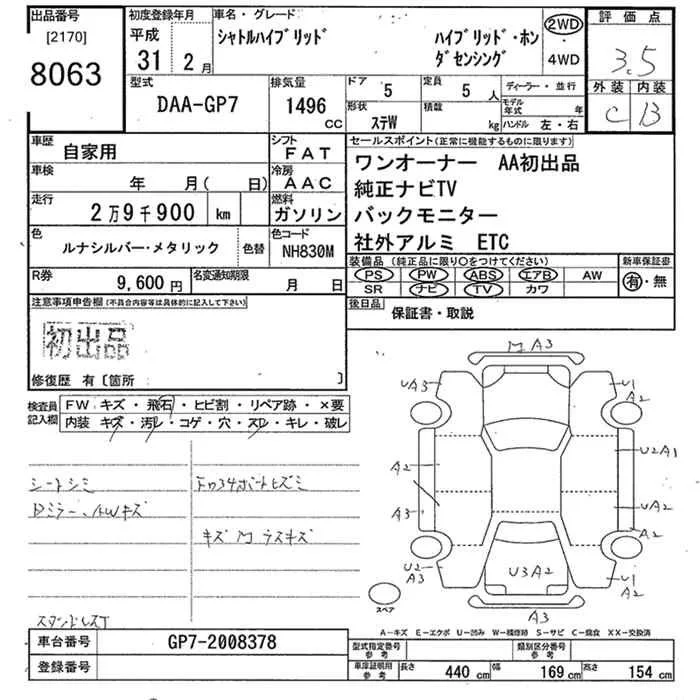 出品番号
[2170]
8063
初度登録年月
平成
31 2 月
車名・グレード
シャトルハイブリッド ハイブリッド・ホン
ダセンシング
2WD
・
4WD
評価点
3.5
外装 内装
C B
型式
DAA-GP7
排気量
1496
CC
ドア 5
定員 5 人
形状 ステW
積載 kg
ディーラー・並行
モデル年式 年
ハンドル 左・右
車歴 自家用
シフト FAT
車検 年 月( 日)
冷房 AAC
走行 2万9千900 km
燃料 ガソリン
色 ルナシルバー・メタリック 色替
色コード NH830M
R券 9,600 円
名変通知期限 月 日
セールスポイント(正常に機能するものに限ります)
ワンオーナー AA初出品
純正ナビTV
バックモニター
社外アルミ ETC
装備品 (純正品に限り○をつけてください)
PS PW ABS エアB AW
SR ナビ TV カワ
新車保証書
有・無
後日品 保証書・取説
注意事項申告欄(不具合内容等は具体的に記入して下さい)
初出品
修復歴 有〔箇所 〕
検査員記入欄
FW キズ・飛石・ヒビ割・リペア跡・×要
内装 キズ・汚レ・コゲ・穴・スレ・キレ・破レ
シートシミ
Dミラー、AWキズ
キズ
A3
UA3
U1
A2
A2
A3
U2A1
UA2
A2
U2
A3
U3A2
U1
A2
A3
スペア
A-キズ E-エクボ U-凹み W-補修跡 S-サビ C-腐食 XX-交換済
車台番号 GP7-2008378
登録番号
型式指定番号
参考
類別区分番号
参考
車庫証明用
参考
長さ 440 cm 幅 169 cm 高さ 154 cm